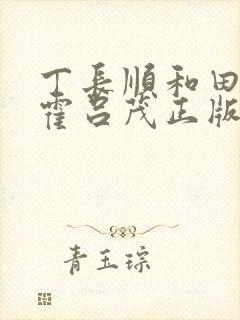 丁長順和田
霍呂茂正版
青玉琮